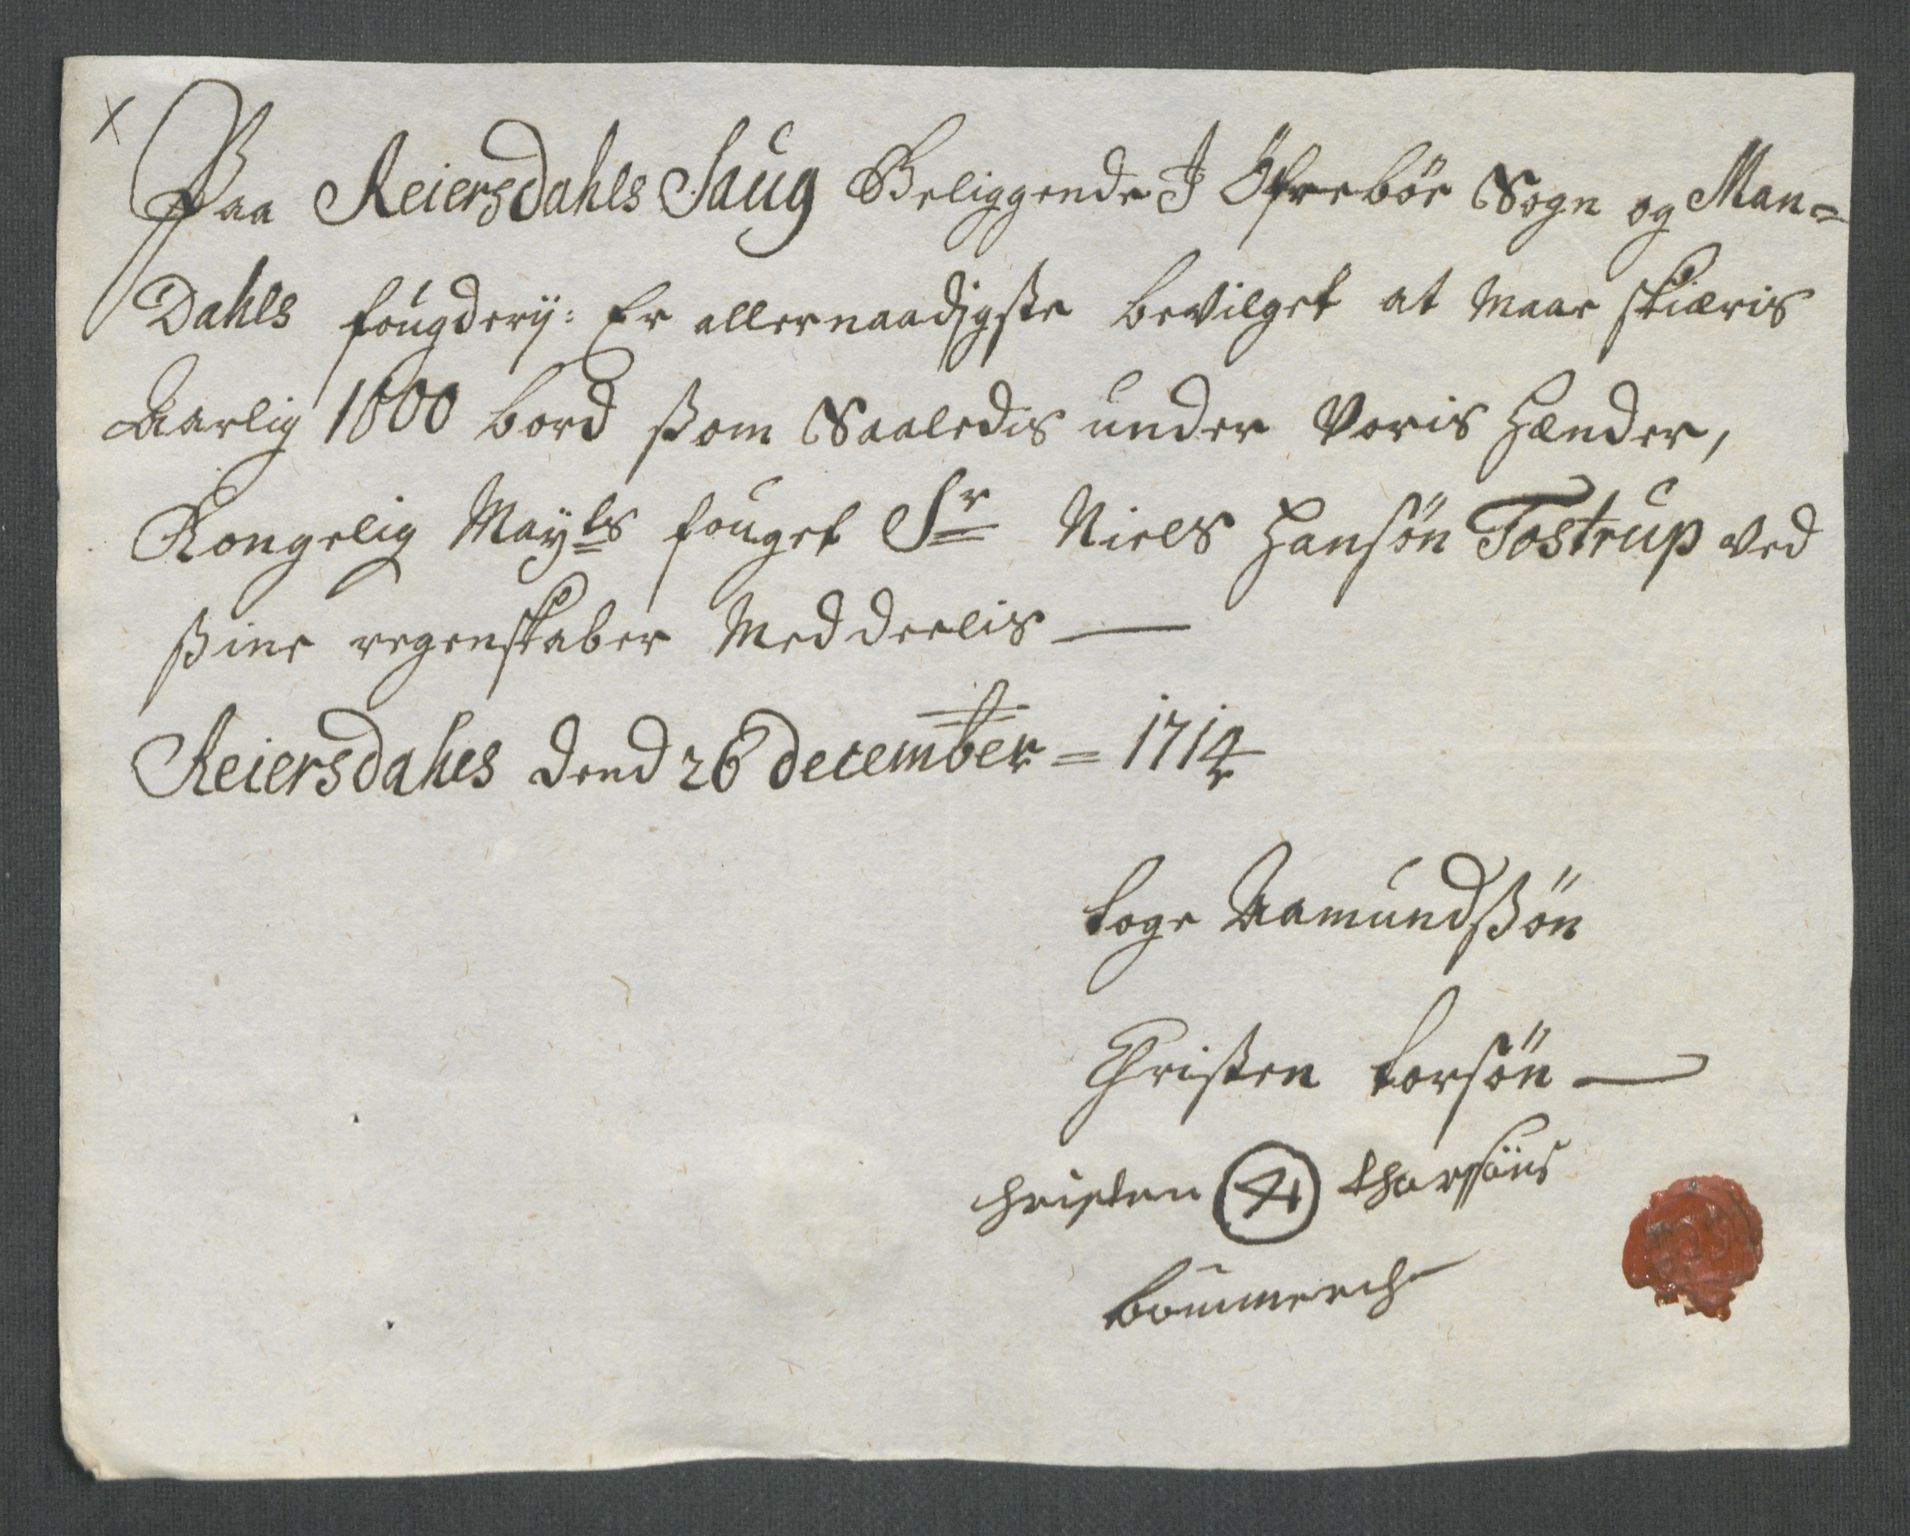 x
Paa Reiersdahls Saug Beliggende I Öfreböe Sogn og Man=
Dahls fougderij: Er allernaadigste bevilget at maae skiæris
Aarlig 1800 bord ßom Saaledis under voris Hænder,
Kongelig Mayts fouget Sr Niels Hansön Tostrup ved
ßine regenskaber Meddeelis —
Reiersdahls dend 26 december = 1714
Toge Aamundßön
Christen Torsön —
christen tharssöns
boummerch